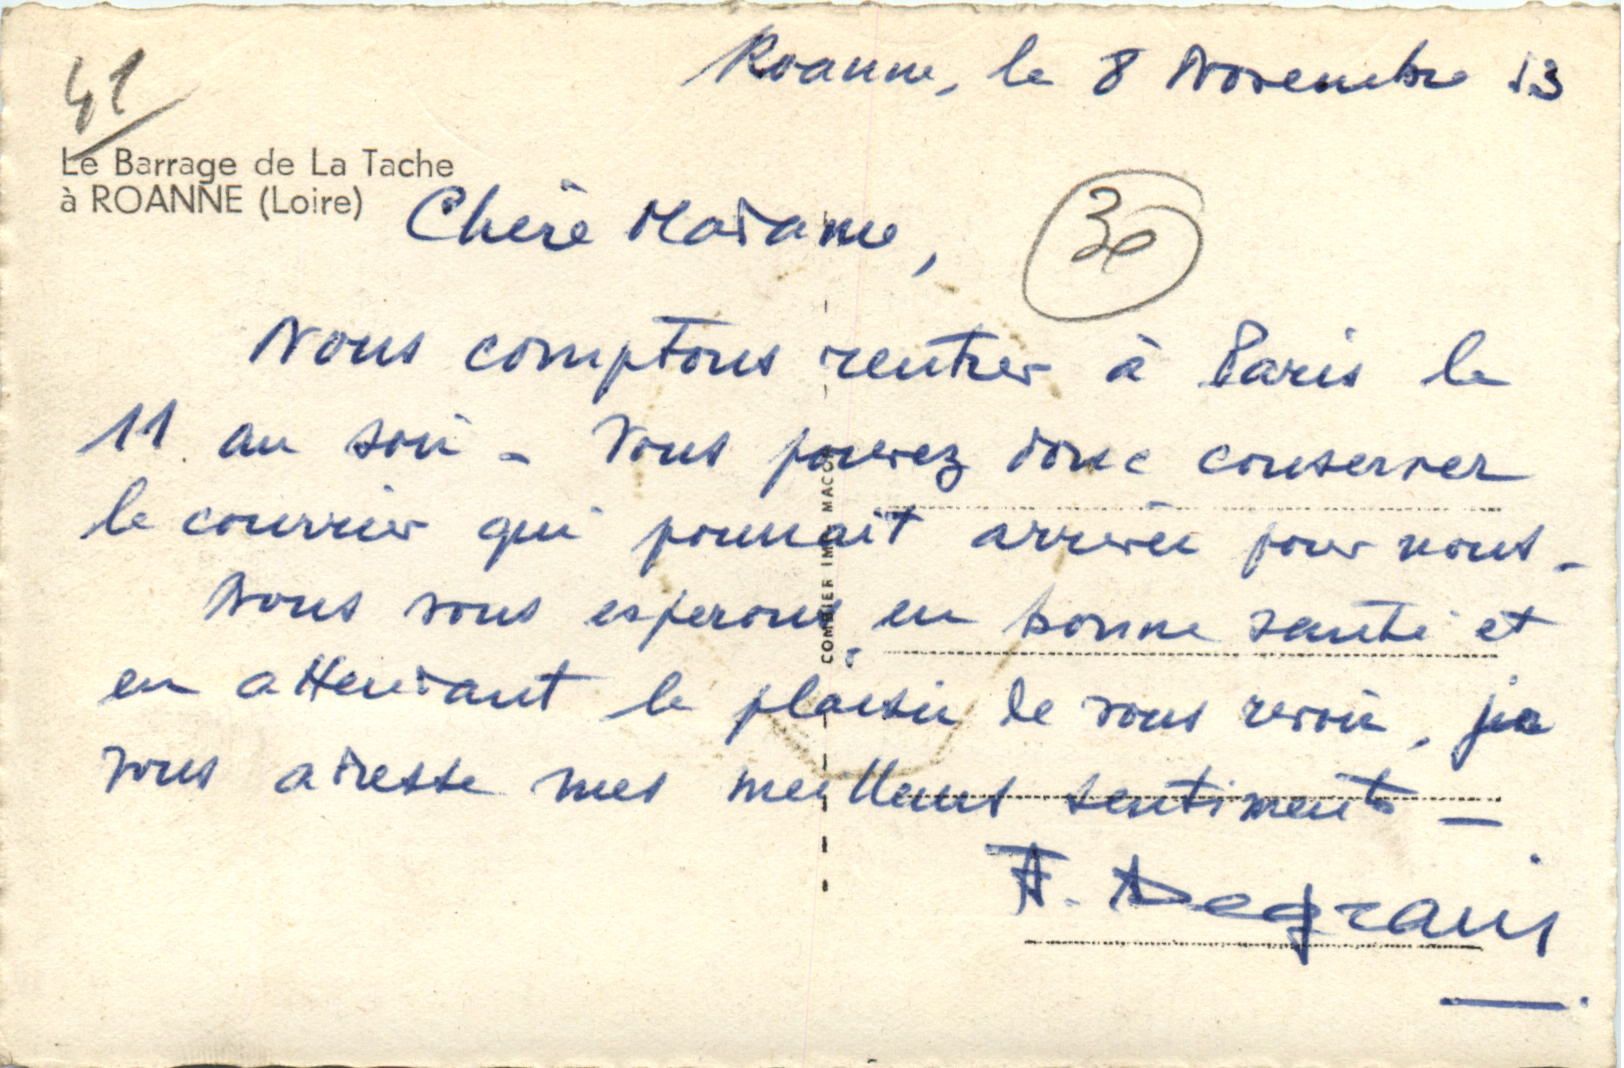 41
Roanne, le 8 Novembre 53
Le Barrage de La Tache
à ROANNE (Loire)
30
Chère Madame,
Nous comptons rentrer à Paris le
11 au soir - Vous pouvez donc conserver
le courrier qui pourrait arriver pour nous -
Nous vous esperons en bonne santé et
en attendant le plaisir de vous revoir, je
vous adresse mes meilleurs sentiments -
A. Degrais
COMBIER IMP. MACON